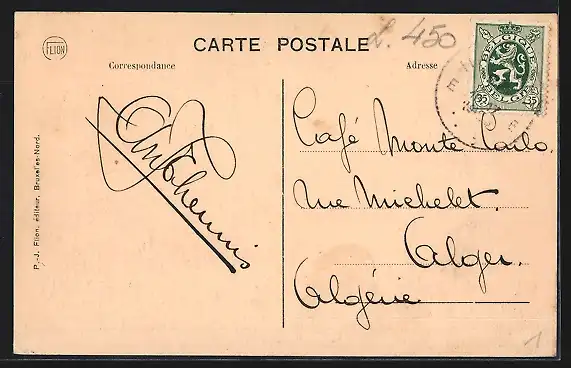 FLION
CARTE POSTALE
L. 450
Correspondance
Adresse
BELGIQUE
BELGIË
35 35
Café Monte Carlo.
rue Michelet.
Alger.
Algérie
P.-J. Flion, éditeur, Bruxelles-Nord.
1